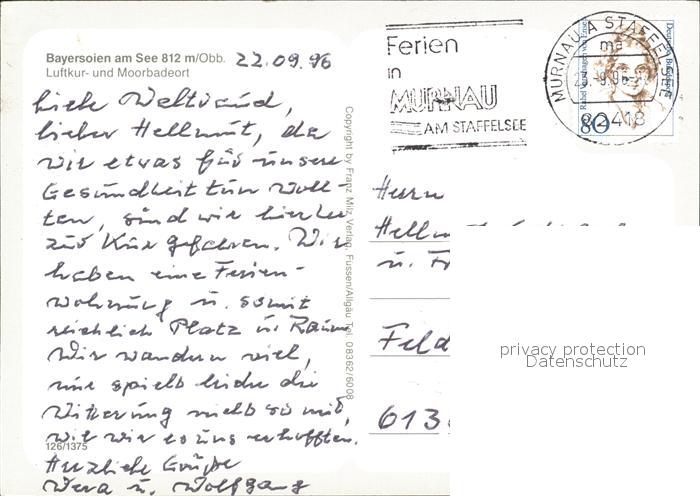 Bayersoien am See 812 m/Obb.
Luftkur- und Moorbadeort
22.09.96
liebe Waltraud,
lieber Hellmut, da
wir etwas für unsere
Gesundheit tun woll-
ten, sind wir hierher
zur Kur gefahren. Wir
haben eine Ferien-
wohnung u. somit
reichlich Platz u. Raum
Wir wandern viel,
nur spielt leider die
Witterung nicht so mit,
wie wir es uns erhofften.
Herzliche Grüße
Wera u. Wolfgang
126/1375
Copyright by Franz Milz Verlag, Füssen/Allgäu Tel. 08362/6008
Ferien
in
MURNAU
AM STAFFELSEE
MURNAU A STAFFELSEE
ma
82418
80
Herrn
Hellm
u. Fr
Feld
613
privacy protection
Datenschutz